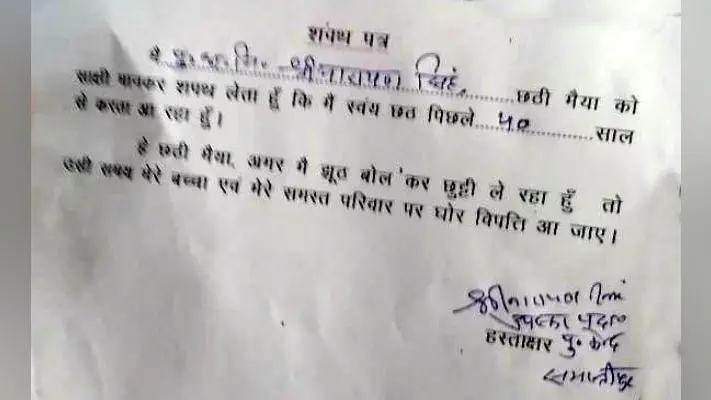 शपथ पत्र
मै पु.अ.नि. श्रीनारायण सिंह,..........छठी मैया को
साक्षी मानकर शपथ लेता हूँ कि मै स्वंय छठ पिछले....५०............साल
से करता आ रहा हूँ।
हे छठी मैया, अगर मै झूठ बोल कर छुट्टी ले रहा हूँ तो
उसी समय मेरे बच्चा एवं मेरे समस्त परिवार पर घोर विपत्ति आ जाए।
श्रीनारायण सिंह
हस्ताक्षर पु० केन्द्र